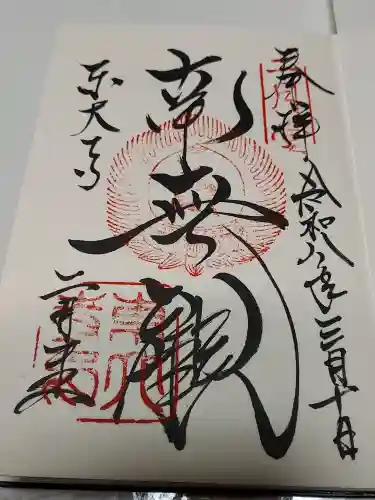 奉拝 令和八年三月十日
南無観
東大寺
二月堂